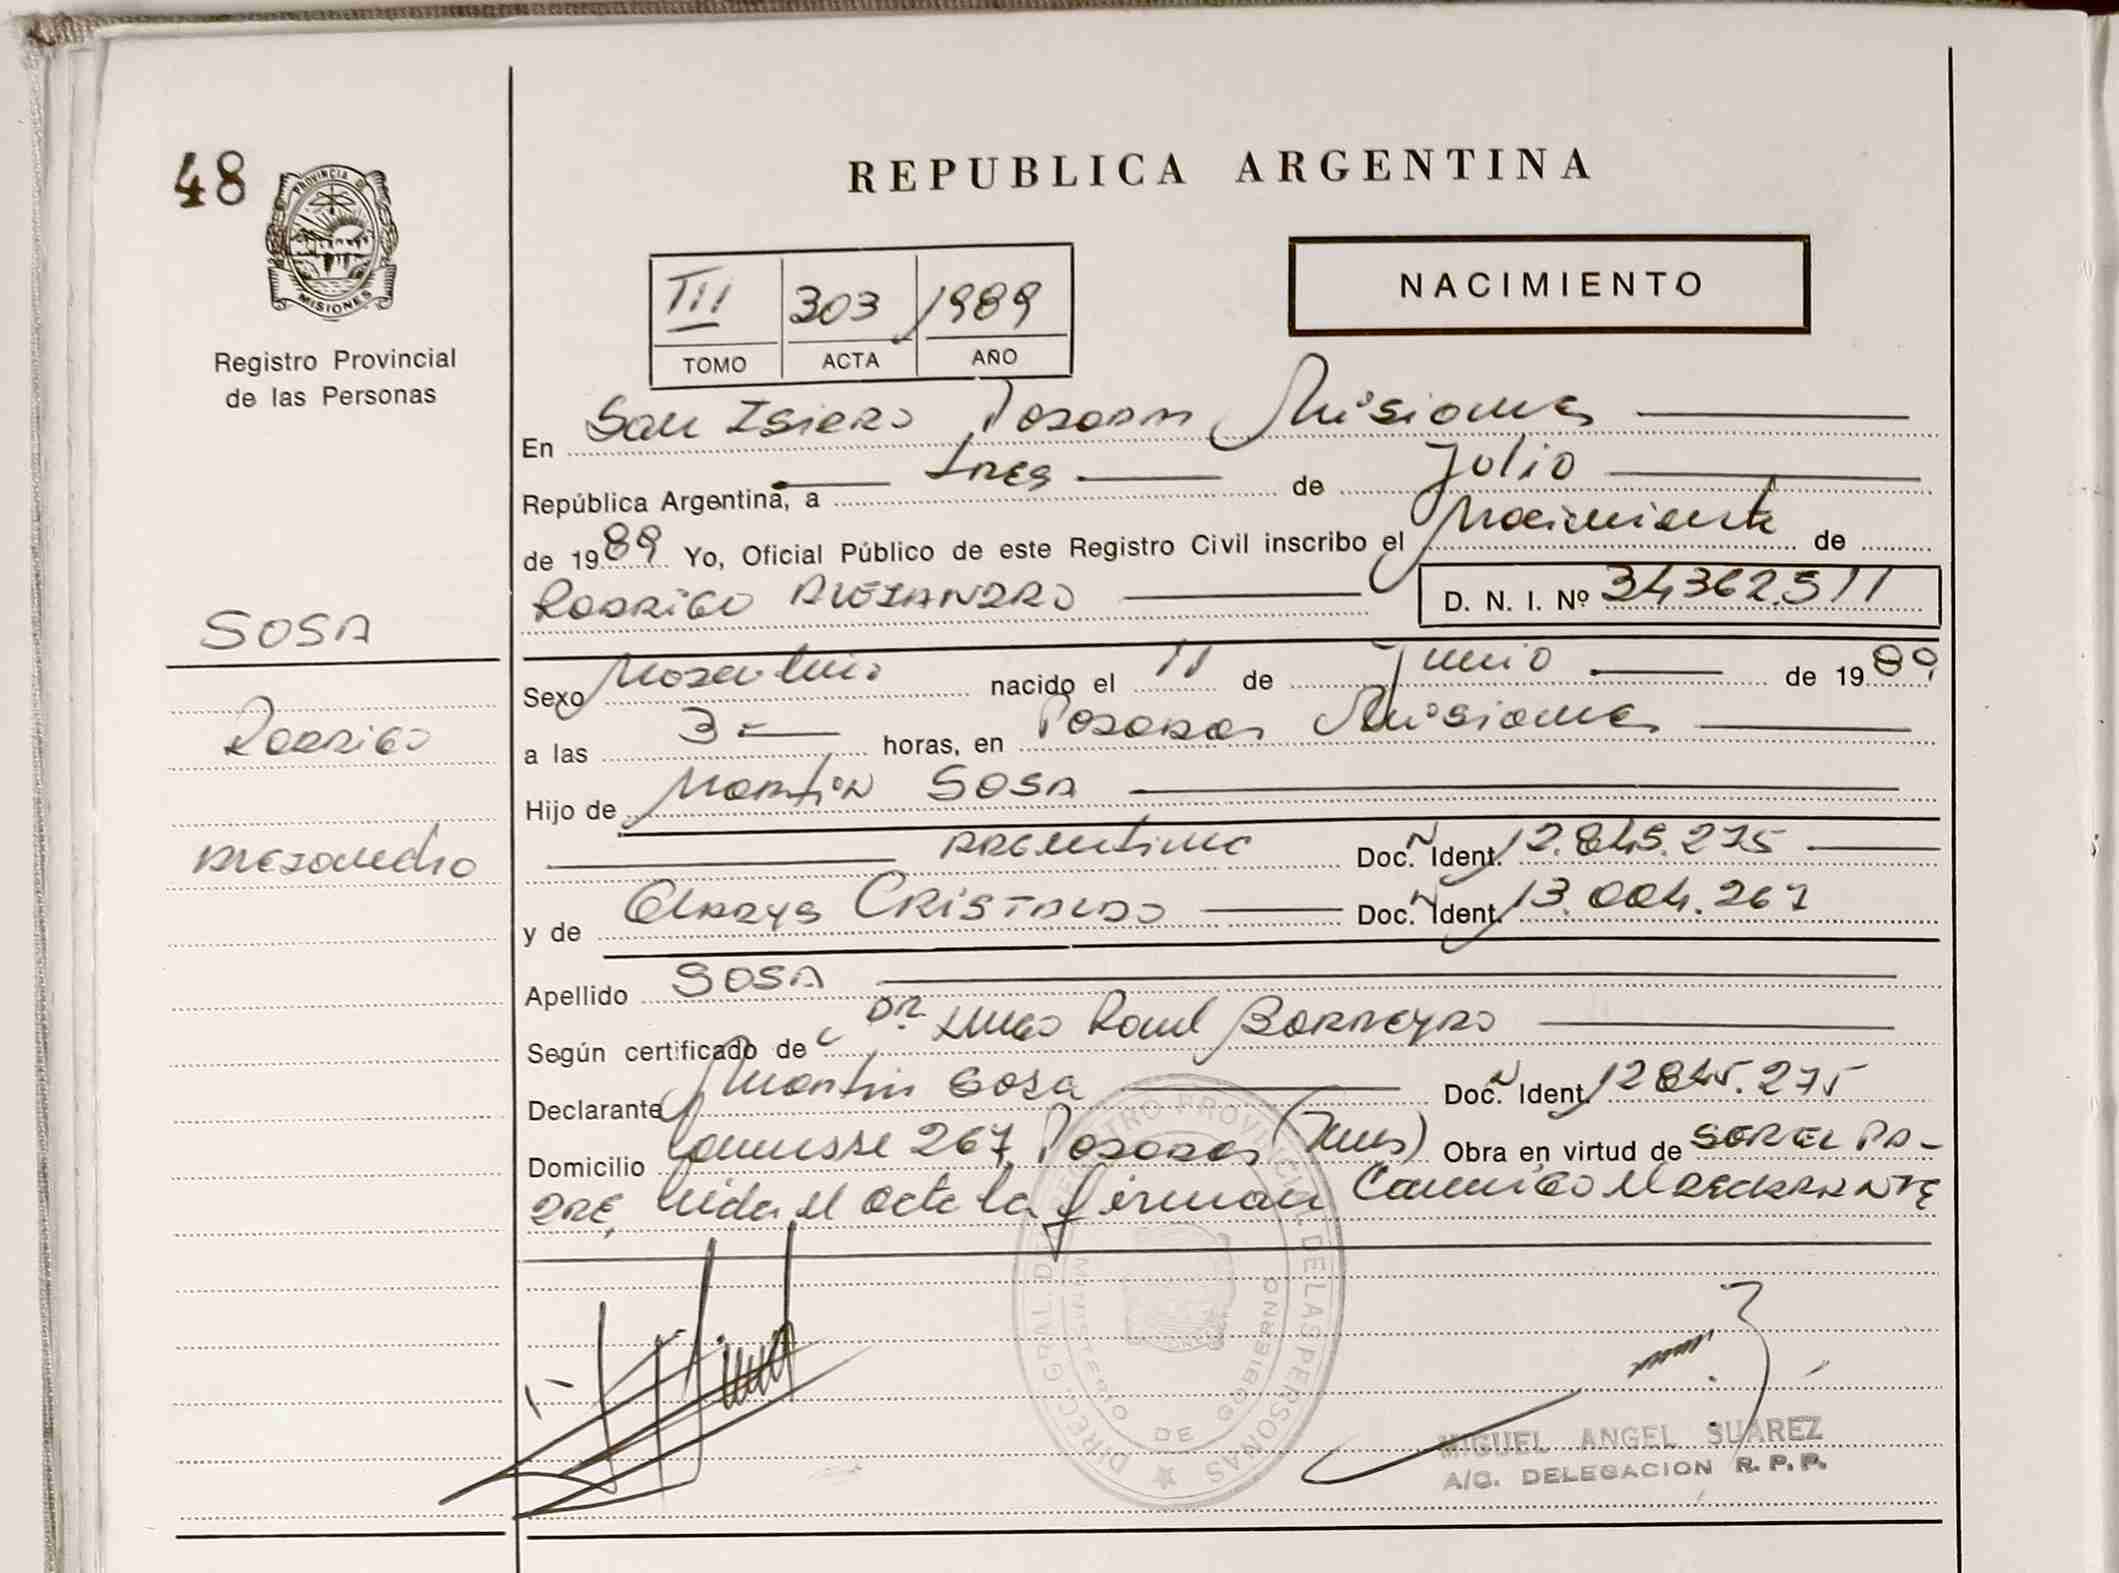 48
PROVINCIA DE
MISIONES
Registro Provincial
de las Personas
REPUBLICA ARGENTINA
NACIMIENTO
III 303 1989
TOMO ACTA AÑO
En San Isidro Posadas Misiones
República Argentina, a tres de Julio
de 1989 Yo, Oficial Público de este Registro Civil inscribo el Nacimiento de
Rodrigo Alejandro D. N. I. Nº 34362.511
SOSA
Rodrigo
Alejandro
Sexo Masculino nacido el 11 de Junio de 1989
a las 3 horas, en Posadas Misiones
Hijo de Martín SOSA
Argentino Doc. Ident. 12.845.275
y de Gladys CRISTALDO Doc. Ident. 13.004.267
Apellido SOSA
Según certificado de Dr. Hugo Raul Barreyro
Declarante Martin Sosa Doc. Ident. 12845.275
Domicilio 267 Posadas (Mnes) Obra en virtud de SER EL PA-
DRE, leida el acta la firman Conmigo el DECLARANTE
DIREC. GRAL. DEL REGISTRO PROVINCIAL DE LAS PERSONAS
MINISTERIO DE GOBIERNO
MIGUEL ANGEL SUAREZ
A/C. DELEGACION R. P. P.